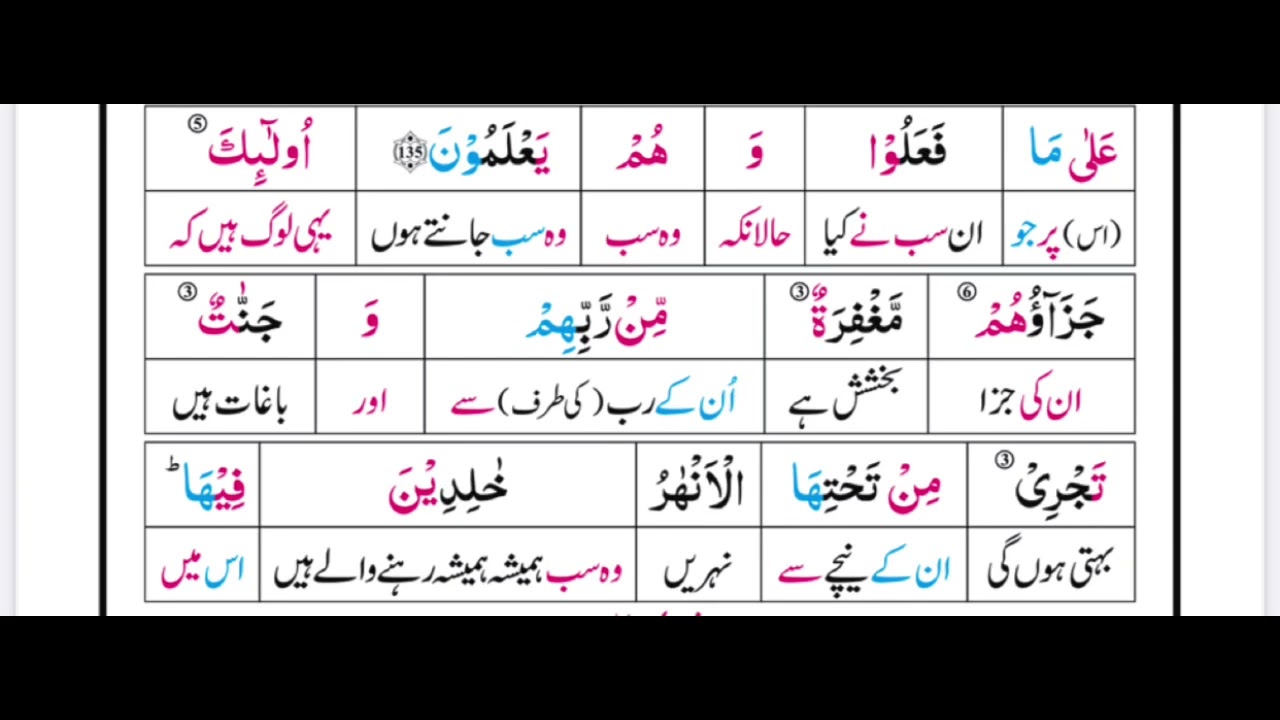 عَلٰى مَا فَعَلُوْا وَ هُمْ يَعْلَمُوْنَ 135 اُولٰٓئِكَ ⑤
(اس) پر جو ان سب نے کیا حالانکہ وہ سب وہ سب جانتے ہوں یہی لوگ ہیں کہ
جَزَآؤُهُمْ ⑥ مَّغْفِرَةٌ ③ مِّنْ رَّبِّهِمْ وَ جَنّٰتٌ ③
ان کی جزا بخشش ہے اُن کے رب (کی طرف) سے اور باغات ہیں
تَجْرِىْ ③ مِنْ تَحْتِهَا الْاَنْهٰرُ خٰلِدِيْنَ فِيْهَا ؕ
بہتی ہوں گی ان کے نیچے سے نہریں وہ سب ہمیشہ ہمیشہ رہنے والے ہیں اس میں